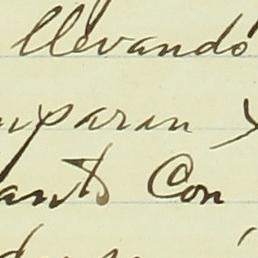 llevando
mparan y
anto Con